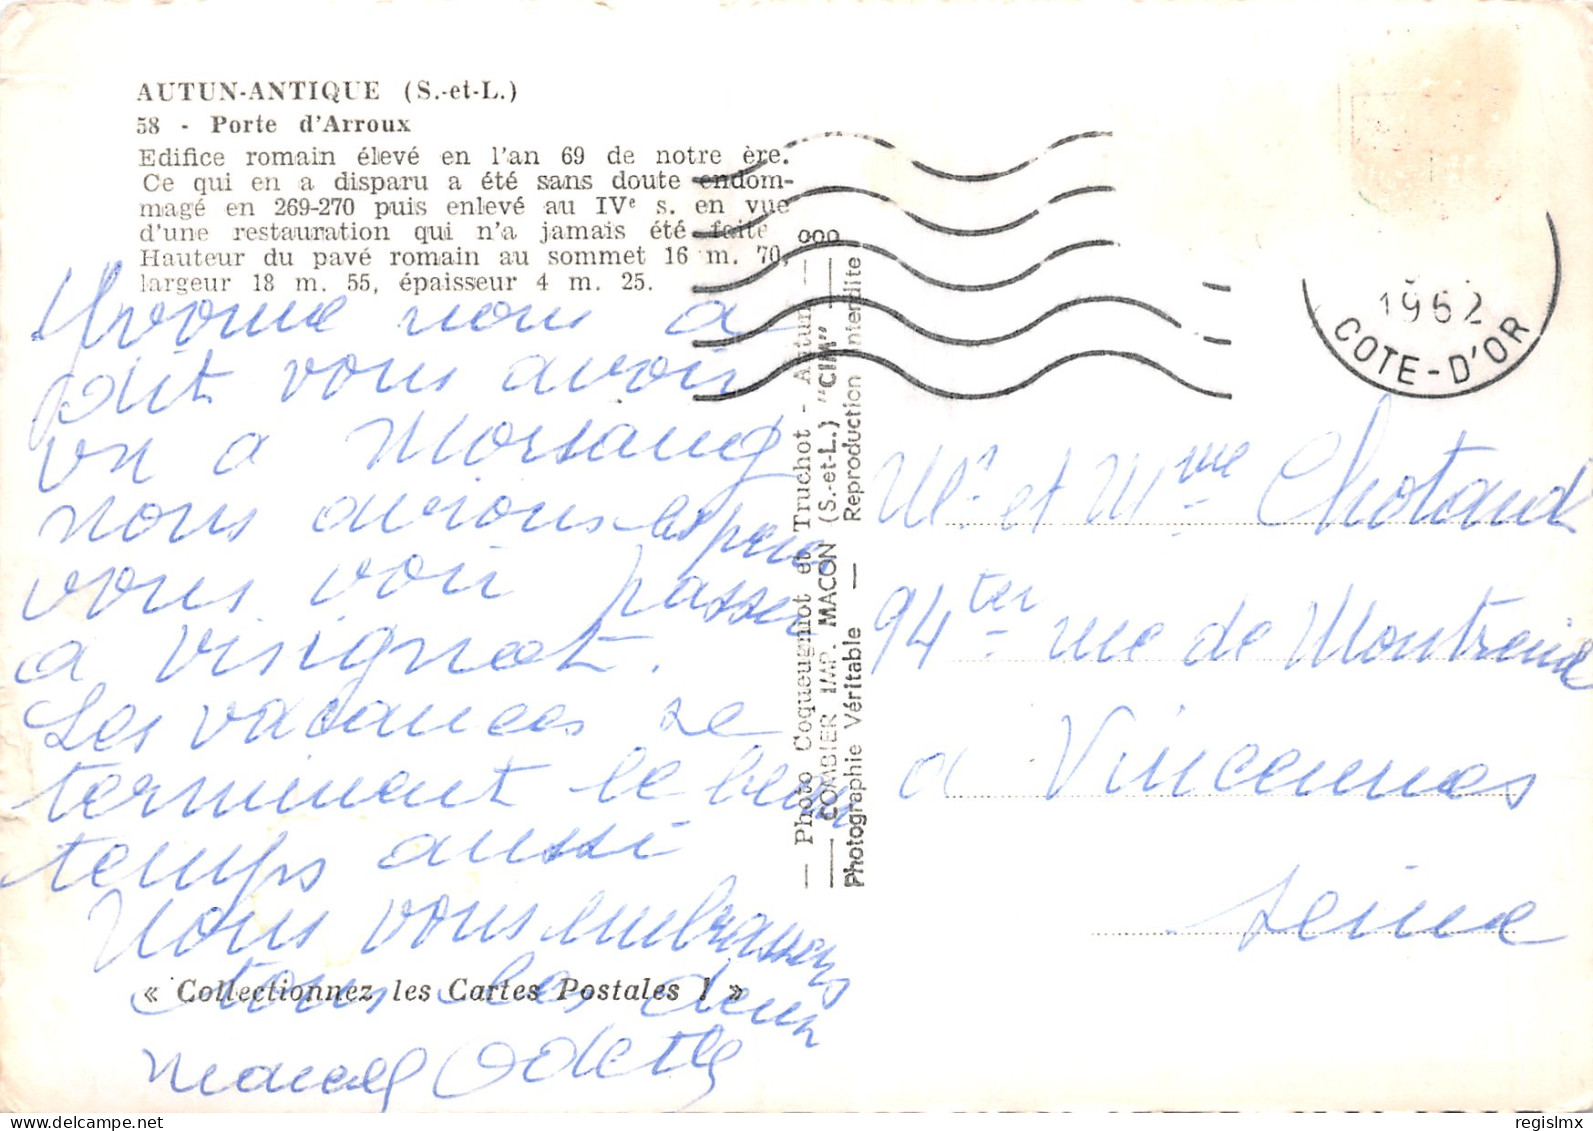 AUTUN-ANTIQUE (S.-et-L.)
58 - Porte d'Arroux
Edifice romain élevé en l'an 69 de notre ère.
Ce qui en a disparu a été sans doute endom-
magé en 269-270 puis enlevé au IVe s. en vue
d'une restauration qui n'a jamais été faite
Hauteur du pavé romain au sommet 16 m. 70,
largeur 18 m. 55, épaisseur 4 m. 25.
Yvonne nous a
dit vous avoir
vu a Morsang
nous avions espéré
vous voir passer
a Visignot.
Les vacances se
terminent le beau
temps aussi
Nous vous embrassons
tous les deux
Marcel Odette
« Collectionnez les Cartes Postales ! »
— Photo Coqueugniot et Truchot - Autun —
COMBIER IMP. MACON (S.-et-L.) "CIM"
Photographie Véritable — Reproduction interdite
000
1962
COTE-D'OR
Mr et Mme Chotard
94 ter rue de Montreuil
a Vincennes
Seine
regislmx